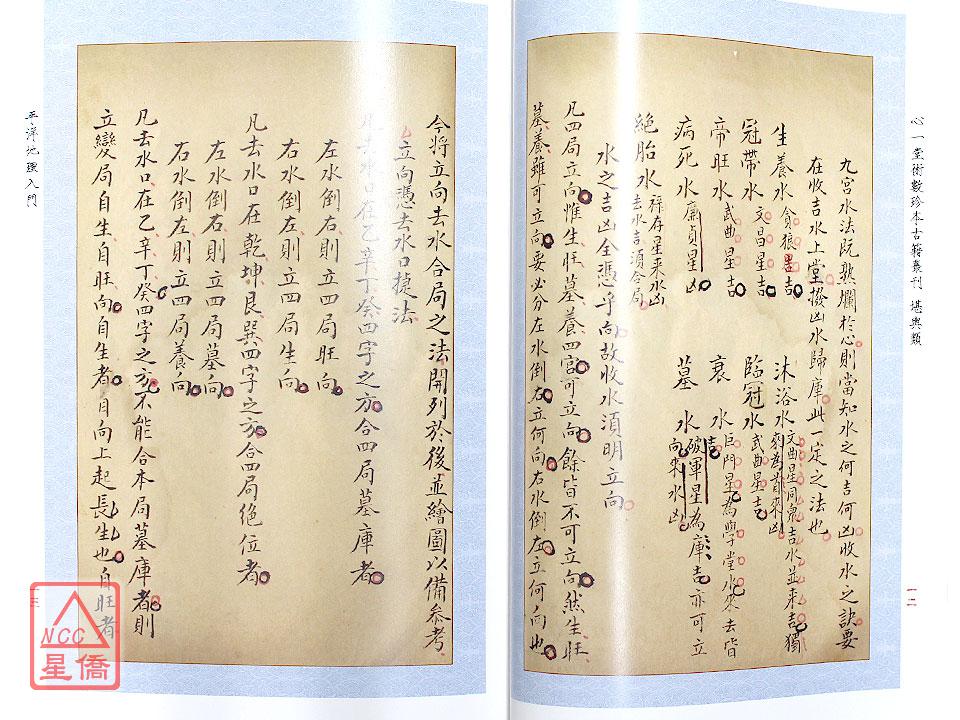 心一堂術數珍本古籍叢刊 堪輿類
九宮水法既熟爛於心則當知水之何吉何凶收水之訣要
在收吉水上堂撥凶水歸庫此一定之法也
生養水 貪狼星吉
沐浴水 文曲星同 吉水並來吉獨 來凶
冠帶水 文昌星吉
臨冠水 武曲星吉
帝旺水 武曲星吉
衰水 巨門星為學堂水來去皆吉
病死水 廉貞星凶
墓水 破軍星為庫吉亦可立向來水凶
絕胎水 祿存星來水凶去水吉須合局
水之吉凶全憑乎向故收水須明立向
凡四局立向惟生旺墓養四宮可立向餘皆不可立向然生旺
墓養雖可立向要必分左水倒右立何向右水倒左立何向也
一二
平洋地理入門
今將立向去水合局之法開列於後並繪圖以備參考
立向憑去水口捷法
凡去水口在乙辛丁癸四字之方合四局墓庫者
左水倒右則立四局旺向
右水倒左則立四局生向
凡去水口在乾坤艮巽四字之方合四局絕位者
左水倒右則立四局墓向
右水倒左則立四局養向
凡去水口在乙辛丁癸四字之方不能合本局墓庫者則
立變局自生自旺向自生者自向上起長生也自旺者
一三
NCC
星僑